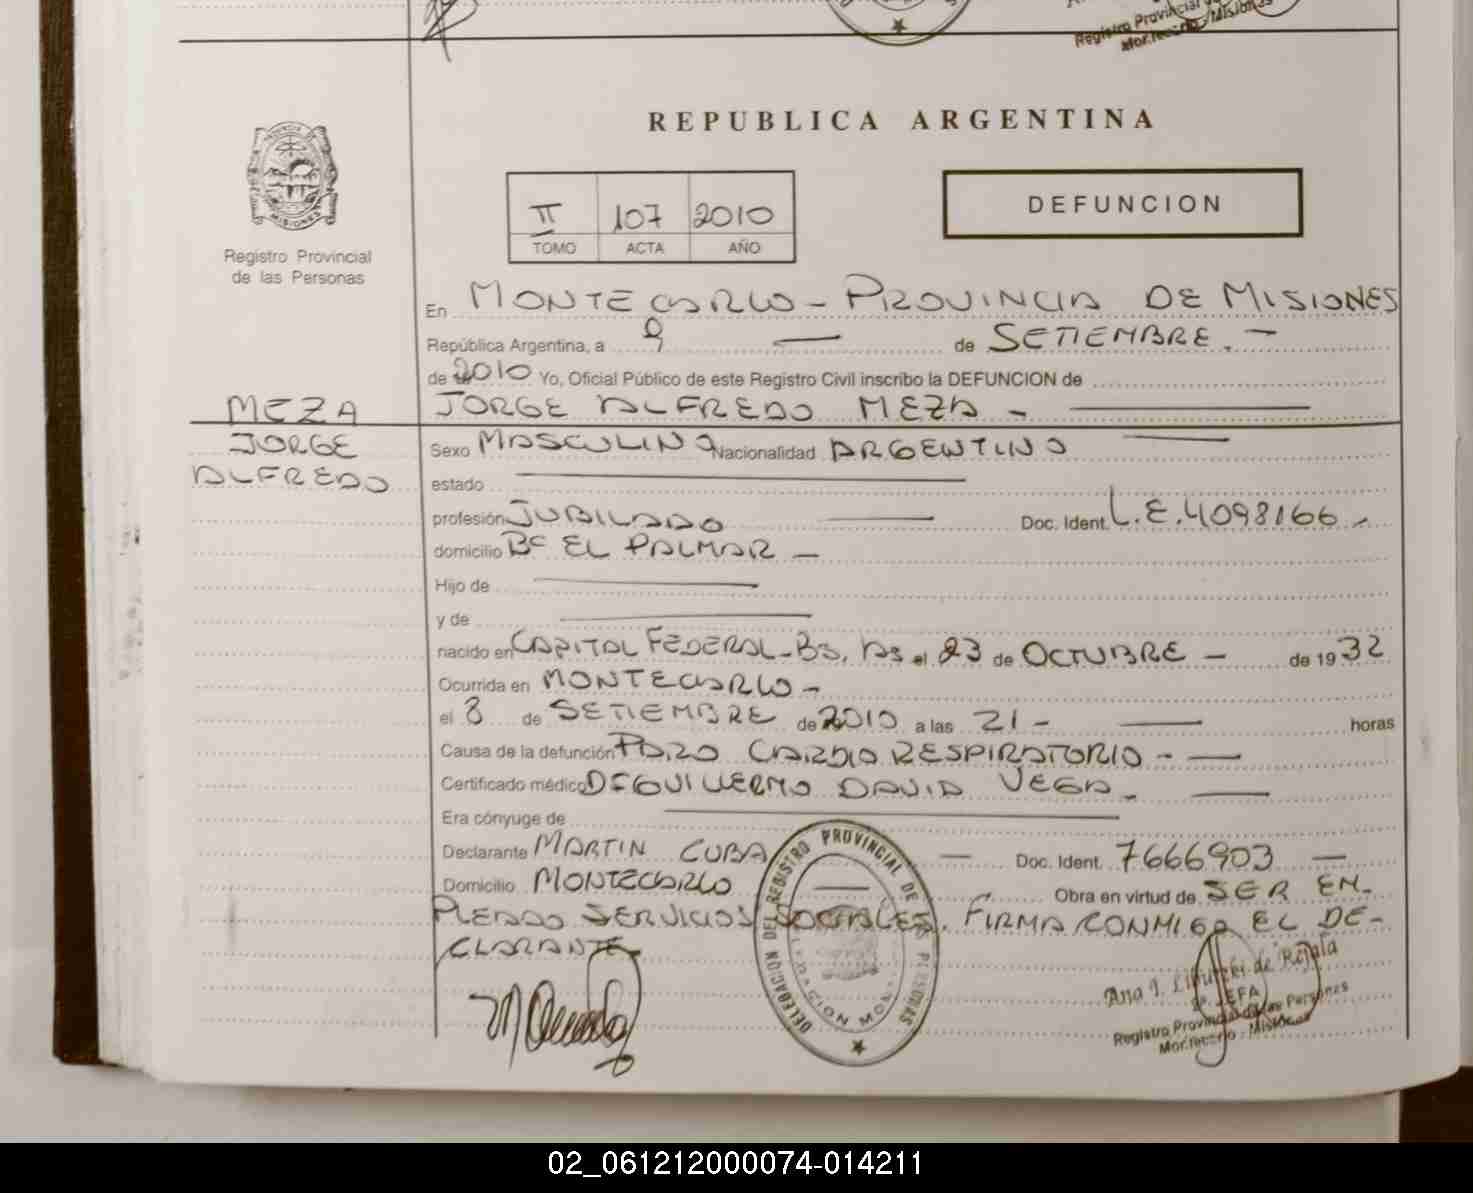 Registro Provincial
REPUBLICA ARGENTINA
PROVINCIA
MISIONES
Registro Provincial
de las Personas
II 107 2010
TOMO ACTA AÑO
DEFUNCION
En MONTECARLO - PROVINCIA DE MISIONES
República Argentina, a 9 — de SETIEMBRE. —
de 2010 Yo, Oficial Público de este Registro Civil inscribo la DEFUNCION de
JORGE ALFREDO MEZA - —
MEZA
JORGE
ALFREDO
Sexo MASCULINO Nacionalidad ARGENTINO —
estado —
profesión JUBILADO — Doc. Ident. L.E. 4098166 -
domicilio Bº EL PALMAR —
Hijo de —
y de —
nacido en CAPITAL FEDERAL - Bs. As el 23 de OCTUBRE - de 1932
Ocurrida en MONTECARLO -
el 8 de SETIEMBRE de 2010 a las 21 - — horas
Causa de la defunción PARO CARDIO RESPIRATORIO - —
Certificado médico DR GUILLERMO DAVID VEGA - —
Era cónyuge de —
Declarante MARTIN CUBA — Doc. Ident. 7666903 —
Domicilio MONTECARLO — Obra en virtud de SER EM-
PLEADO SERVICIOS SOCIALES. FIRMA CONMIGO EL DE-
CLARANTE
DELEGACION DEL REGISTRO PROVINCIAL DE LAS PERSONAS
Ana I. de Rejala
JEFA
Registro Provincial de las Personas
Montecarlo - Misiones
02_061212000074-014211